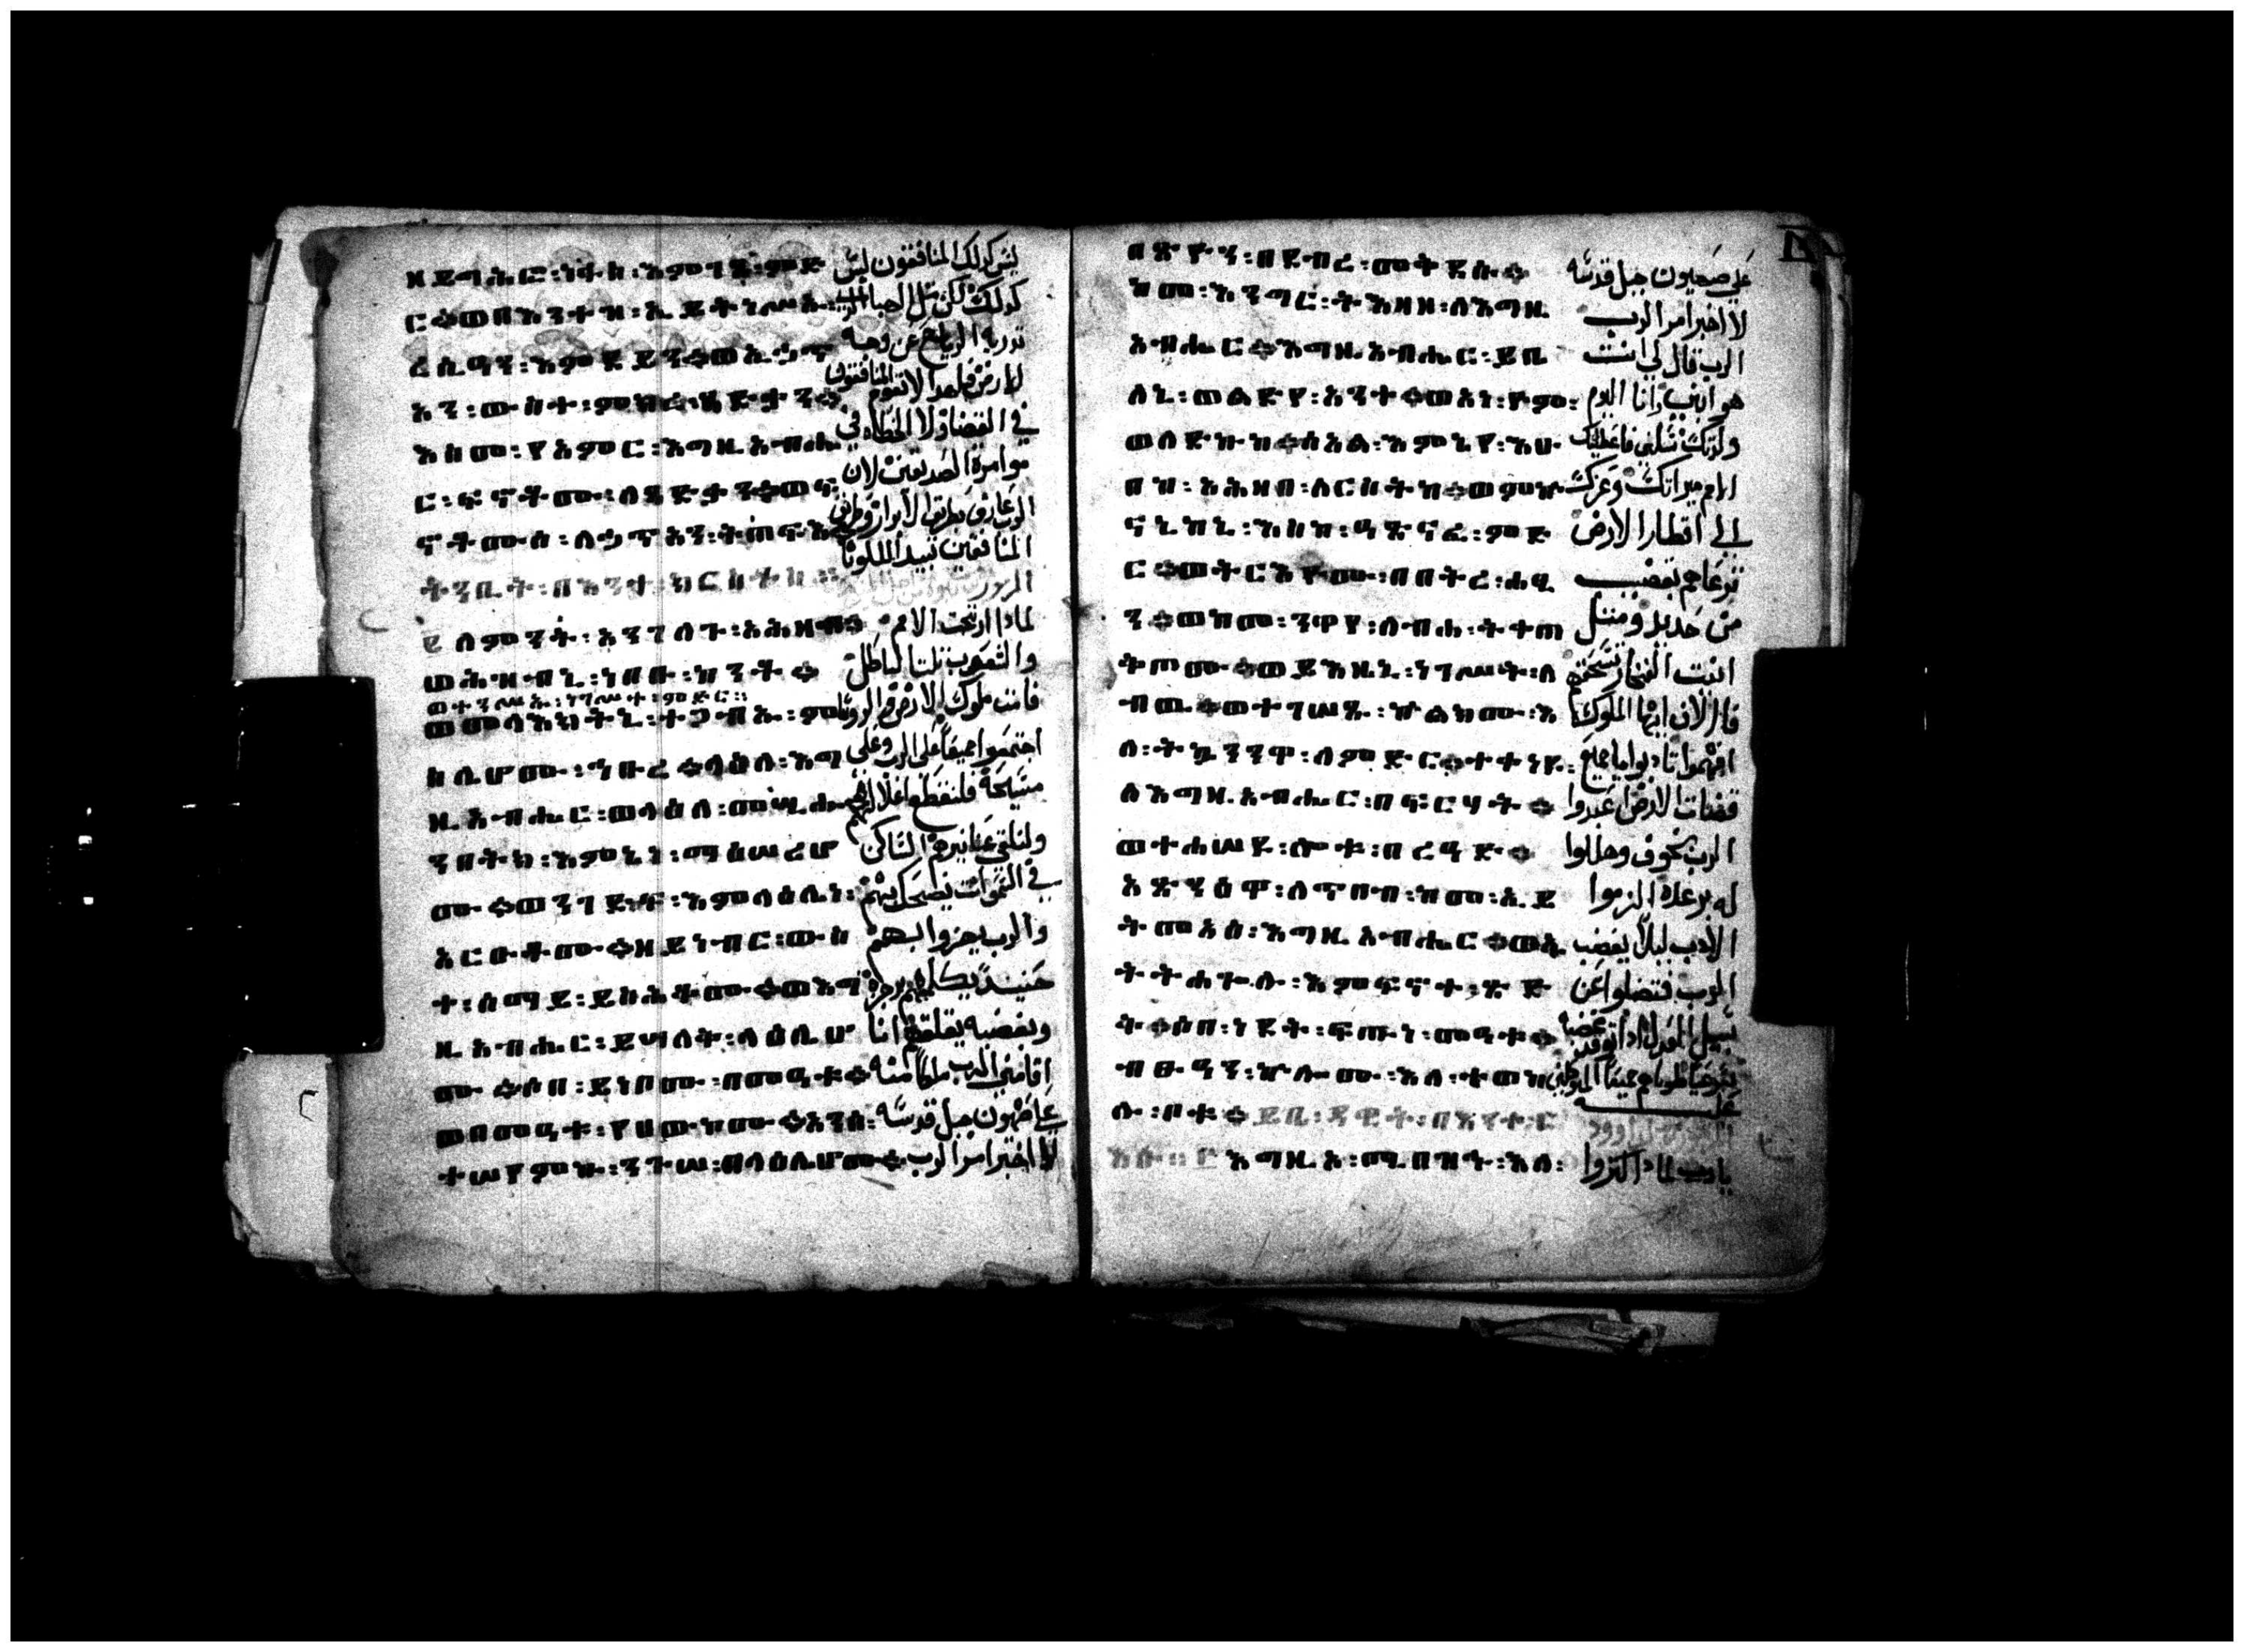 ዘይግሕፎ፡ነፋስ፡እምገጸ፡ምድ
ር፨ወበእንተዝ፡ኢይትነሥኡ፡
ረሲዓን፡እምደይን፨ወኢኃጥ
አን፡ውስተ፡ምክረ፡ጻድቃን፨
እስመ፡ያአምር፡እግዚአብሔ
ር፡ፍኖቶሙ፡ለጻድቃን፨ወፍ
ኖቶሙሰ፡ለኃጥአን፡ትጠፍእ
ትንቢት፡በእንተ፡ክርስቶስ
፪ ለምንት፡አንገለጉ፡አሕዛብ፨
ወሕዝብኒ፡ነበቡ፡ከንቶ፨
ወተንሥኡ፡ነገሥተ፡ምድር፡፡
ወመላእክትኒ፡ተጋብኡ፡ምስ
ሌሆሙ፡ኅቡረ፨ላዕለ፡እግ
ዚአብሔር፡ወላዕለ፡መሲሑ
ንበትክ፡እምኔነ፡ማዕሠሪሆ
ሙ፨ወንገድፍ፡እምላዕሌነ፡
አርዑቶሙ፨ዘይነብር፡ውስ
ተ፡ሰማይ፡ይስሕቆሙ፨ወእግ
ዚአብሔር፡ይሳለቅ፡ላዕሌሆ
ሙ፨ሶበ፡ይነቦሙ፡በመዓቱ፨
ወበመዓቱ፡የሀውኮሙ፨አንሰ፡
ተሠየምኩ፡ንጉሠ፡በላዕሌሆሙ፨
ليس كذلك المنافقون ليس
كذلك لكن مثل الهبا الذي
تذريه الرياح عن وجه
الارض فلهذا لا تقوم المنافقون
في القضا ولا الخطاه في
موامرة الصديقين لان
الرب عارف بطريق الابرار وطريق
المنافقين تبيد الهللويا
لماذا ارتجت الامم
والشعوب تلت الباطل
قامت ملوك الارض والروسا
اجتمعوا جميعا على الرب وعلى
مسيحه فلنقطع اغلالهم
ولنلقي عنا نيرهم الساكن
في السموات يضحك بهم
والرب يهزوا بهم
حينيذ يكلمهم برجزه
وبغضبه يقلقهم انا
اقامني الرب ملكا منه
على صهيون جبل قدسه
لا اخبر امر الرب
በጽዮን፡በደብረ፡መቅደሱ፨
ከመ፡እንግር፡ትእዛዘ፡ለእግዚ
አብሔር፨እግዚአብሔር፡ይቤ
ለኒ፡ወልድየ፡አንተ፨ወአነ፡ዮም፡
ወለድኩከ፨ሰአል፡እምኔየ፡እሁ
በከ፡አሕዛበ፡ለርስትከ፨ወምኵ
ናኒከኒ፡እስከ፡ዓጽናፈ፡ምድ
ር፨ወትርእዮሙ፡በበትረ፡ሐፂ
ን፨ወከመ፡ንዋየ፡ለብሓ፡ትቀጠ
ቅጦሙ፨ወይእዜኒ፡ነገሥት፡ለ
ብዉ፨ወተገሠጹ፡ኵልክሙ፡እ
ለ፡ትኴንንዋ፡ለምድር፨ተቀነዩ፡
ለእግዚአብሔር፡በፍርሃት፨
ወተሐሠዩ፡ሎቱ፡በረዓድ፨
አጽንዕዋ፡ለጥበብ፡ከመ፡ኢይ
ትመዓዕ፡እግዚአብሔር፨ወኢ
ትትሐጐሉ፡እምፍኖተ፡ጽድ
ቅ፨ሶበ፡ነደት፡ፍጡነ፡መዓቱ፨
ብፁዓን፡ኵሎሙ፡እለ፡ተወከ
ሉ፡ቦቱ፨
እግዚኦ፡ሚበዝኁ፡እለ፡
على صهيون جبل قدسه
لا اخبر امر الرب
الرب قال لي انت
هو ابني وانا اليوم
ولدتك سلني فاعطيك
الامم ميراثك وعزك
الي اقطار الارض
ترعاهم بقضيب
من حديد ومثل
انيت الفخار تسحقهم
فالان ايها الملوك
افهموا تادبوا يا جميع
قضات الارض اعبدوا
الرب بخوف وهللوا
له برعده الزموا
الادب ليلا يغضب
الرب فتضلوا عن
سبيل العدل اذا توقد غضبه
عليه
يا رب لماذا كثروا